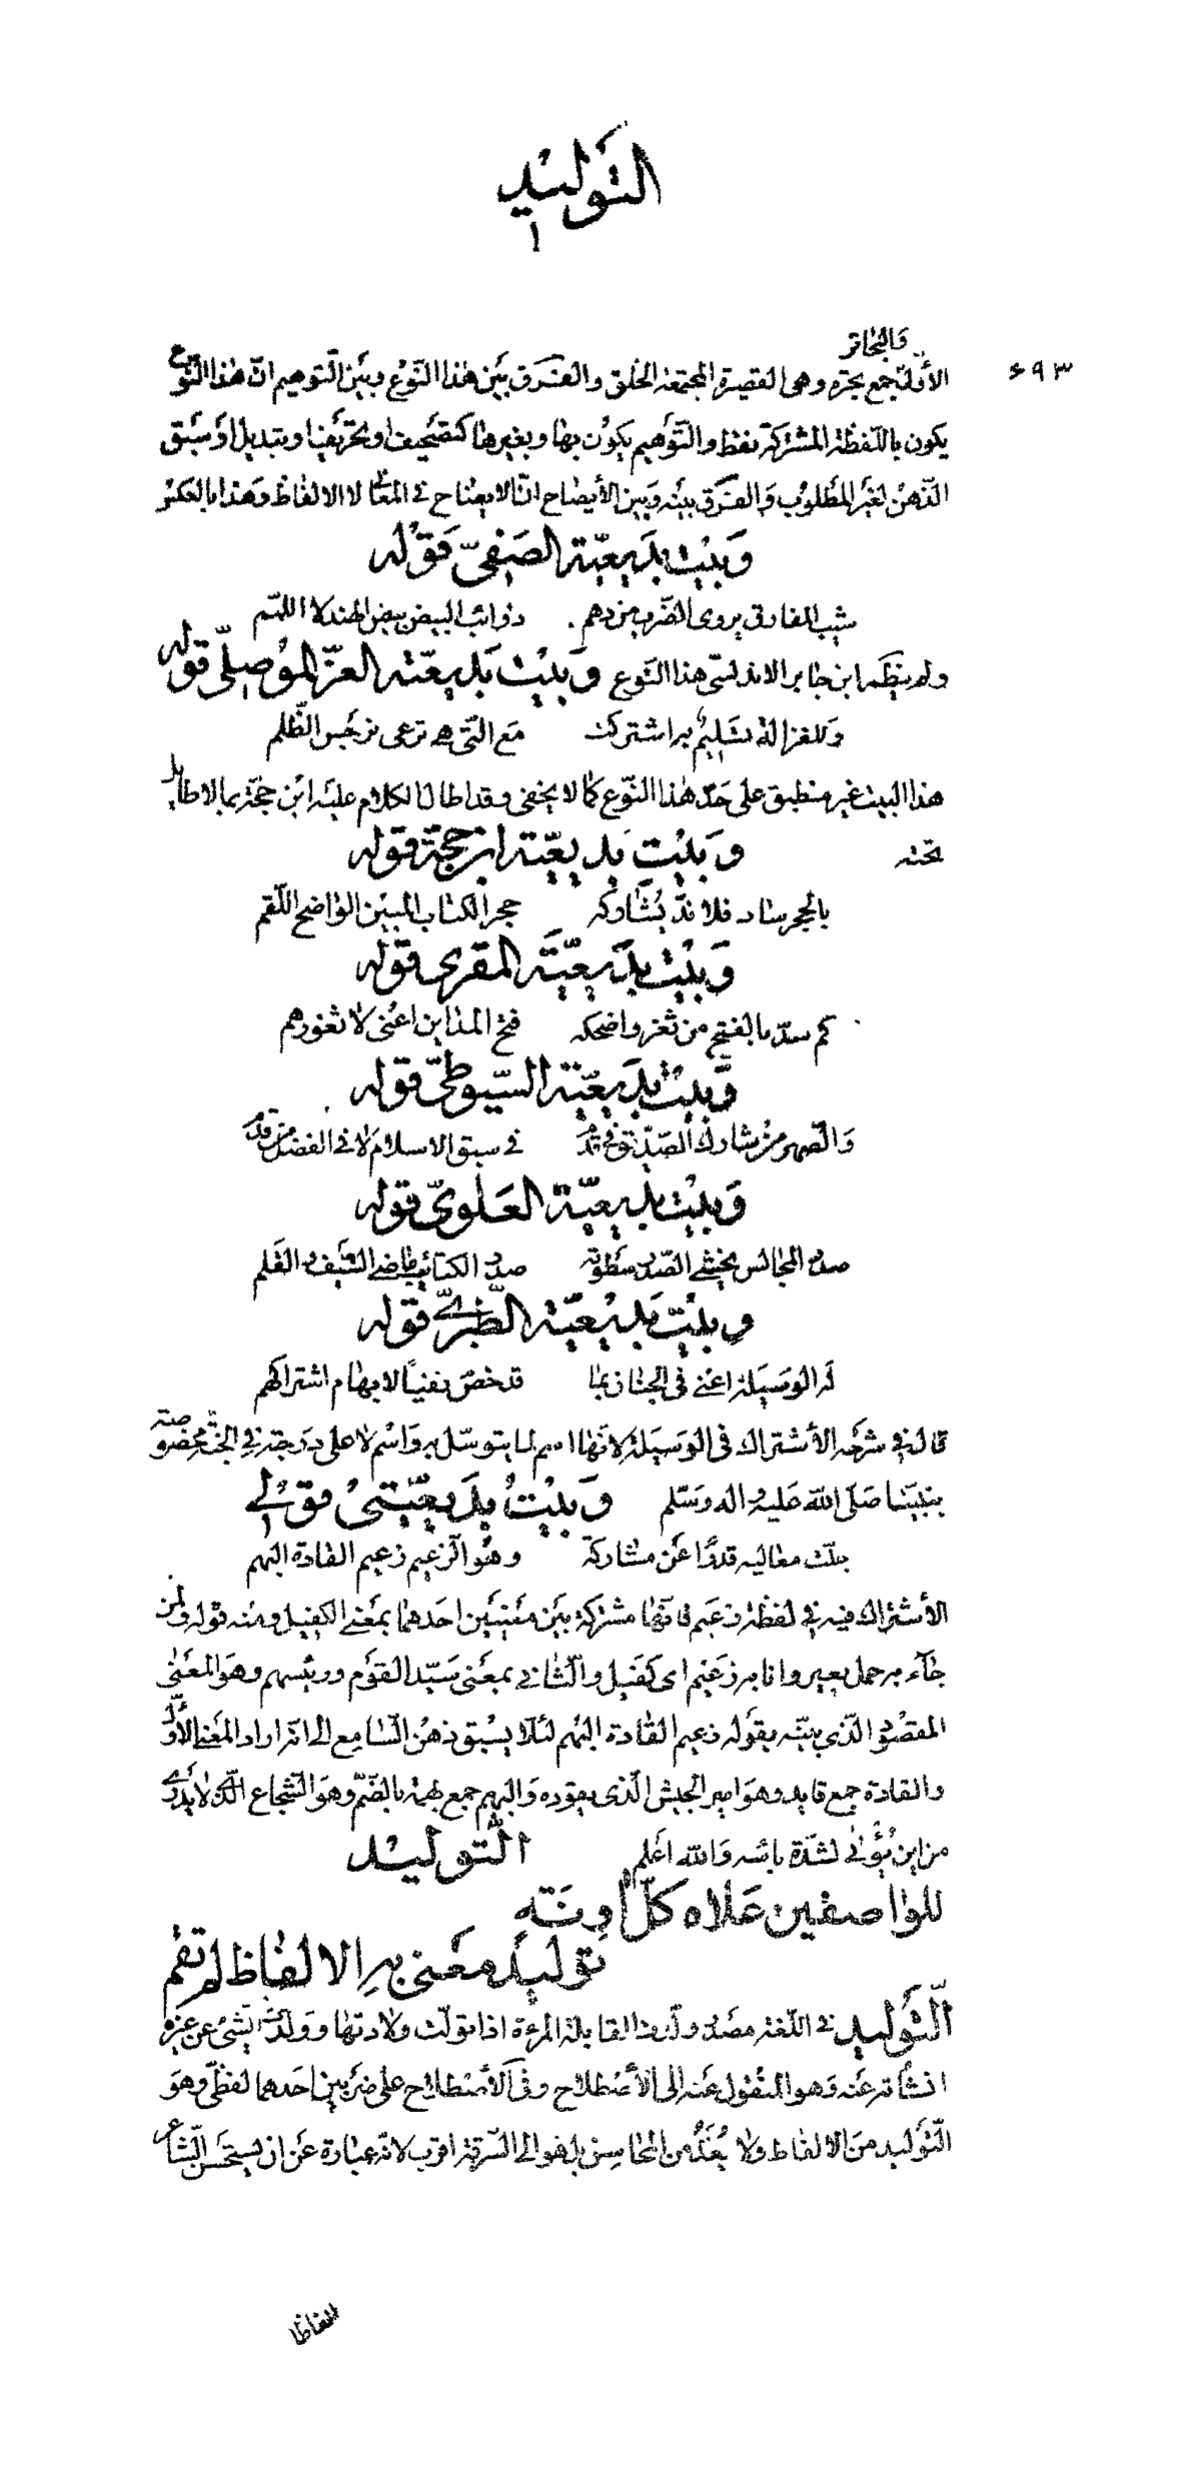 التوليد
١
٦٩٣
والبحاتر
الأوّل جمع بحترة وهى القصيرة المجتمعة الخلق والفرق بين هذا النّوع وبين التوهيم انّ هذا النّوع
يكون باللّفظة المشتركة فقط والتّوهيم يكون بها وبغيرها كتصحيف او تحريف او تبديل او سبق
الذّهن لغير المطلوب والفرق بينه وبين الأيضاح انّ الايضاح فى المعانى لا الالفاظ وهذا بالعكس
وبيت بديعيّة الصّفىّ قوله
شيب المفارق يروى الضّرب من دمهم ذوائب البيض بيض الهند لا اللّمم
ولم ينظم ابن جابر الاندلسىّ هذا النّوع وبيت بديعيّة العزّ الموصلىّ قوله
وللغزالة تسليم به اشتركت مع الّتى هى ترعى نرجس الظّلم
هذا البيت غير منطبق على حدّ هذا النّوع كما لا يخفى وقد اطال الكلام عليه ابن حجّة بما لا طائل
تحته وبيت بديعيّة ابن حجّة قوله
بالحجر ساد فلا ندّ يشاركه حجر الكتاب المبين الواضح اللّقم
وبيت بديعيّة المقرى قوله
كم سدّ بالفتح من ثغر واضحكه فتح المداين اعنى لا ثغورهم
وبيت بديعيّة السّيوطىّ قوله
والصّهر من شارك الصّدّيق فى قدم فى سبق الاسلام لا فى الفضل من قدم
وبيت بديعيّة العلوىّ قوله
صدر المجالس يخشى الصّدر سطوته صدر الكتائب ماضى السّيف والقلم
وبيت بديعيّة الطّبرىّ قوله
له الوسيلة اعنى فى الجنان بما قد خصّ نفيًا لايهام اشتراكهم
قال فى شرحه الأشتراك فى الوسيلة لانّها اسم لما يتوسّل به واسم لاعلى درجة فى الجنّة مخصوصة
بنبيّنا صلّى اللّه عليه واله وسلّم وبيت بديعيّتى قولى
جلّت معاليه قدرًا عن مشاركة وهو الزّعيم زعيم القادة البهم
الأشتراك فيه فى لفظة زعيم فانّها مشتركة بين معنيين احدهما بمعنى الكفيل ومنه قوله ولمن
جآء به حمل بعير وانا به زعيم اى كفيل والثّانى بمعنى سيّد القوم ورئيسهم وهو المعنى
المقصود الّذى بيّنته بقوله زعيم القادة البهم لئلّا يسبق ذهن السّامع الى انّه اراد المعنى الأوّل
والقادة جمع قايد وهو امير الجيش الّذى يقوده والبهم جمع بهمة بالضّمّ وهو الشّجاع الّذى لا يدرى
من اين يؤتى لشدّة بائسه واللّه اعلم التّوليد
للواصفين علاه كلّ اونة
توليد معنى به الالفاظ لم تقم
التّوليد فى اللّغة مصدر ولّدت القابلة المرءة اذا تولّت ولادتها وولّدت الشّئ عن غيره
انشأته عنه وهو المنقول عنه الى الأصطلاح وفى الأصطلاح على ضربين احدهما لفظىّ وهو
التّوليد من الالفاظ ولا يُعَدُّ من المحاسن بل هو الى السّرقة اقرب لانّه عبارة عن ان يستحسن الشّاعر
الفاظا